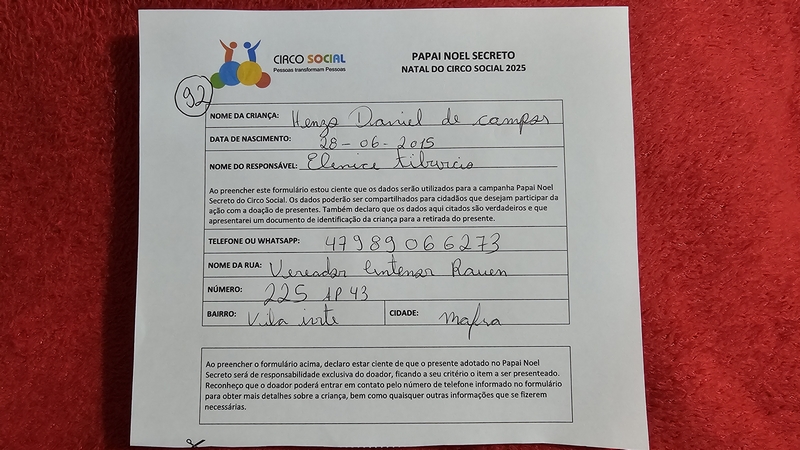 CIRCO SOCIAL
Pessoas transformam Pessoas
PAPAI NOEL SECRETO
NATAL DO CIRCO SOCIAL 2025
92
NOME DA CRIANÇA: Henzo Daniel de campos
DATA DE NASCIMENTO: 28-06-2015
NOME DO RESPONSÁVEL: Elenice tiburcio
Ao preencher este formulário estou ciente que os dados serão utilizados para a campanha Papai Noel
Secreto do Circo Social. Os dados poderão ser compartilhados para cidadãos que desejam participar da
ação com a doação de presentes. Também declaro que os dados aqui citados são verdadeiros e que
apresentarei um documento de identificação da criança para a retirada do presente.
TELEFONE OU WHATSAPP: 47989066273
NOME DA RUA: Vereador Rauen
NÚMERO: 225 AP 43
BAIRRO: Vila CIDADE: Mafra
Ao preencher o formulário acima, declaro estar ciente de que o presente adotado no Papai Noel
Secreto será de responsabilidade exclusiva do doador, ficando a seu critério o item a ser presenteado.
Reconheço que o doador poderá entrar em contato pelo número de telefone informado no formulário
para obter mais detalhes sobre a criança, bem como quaisquer outras informações que se fizerem
necessárias.